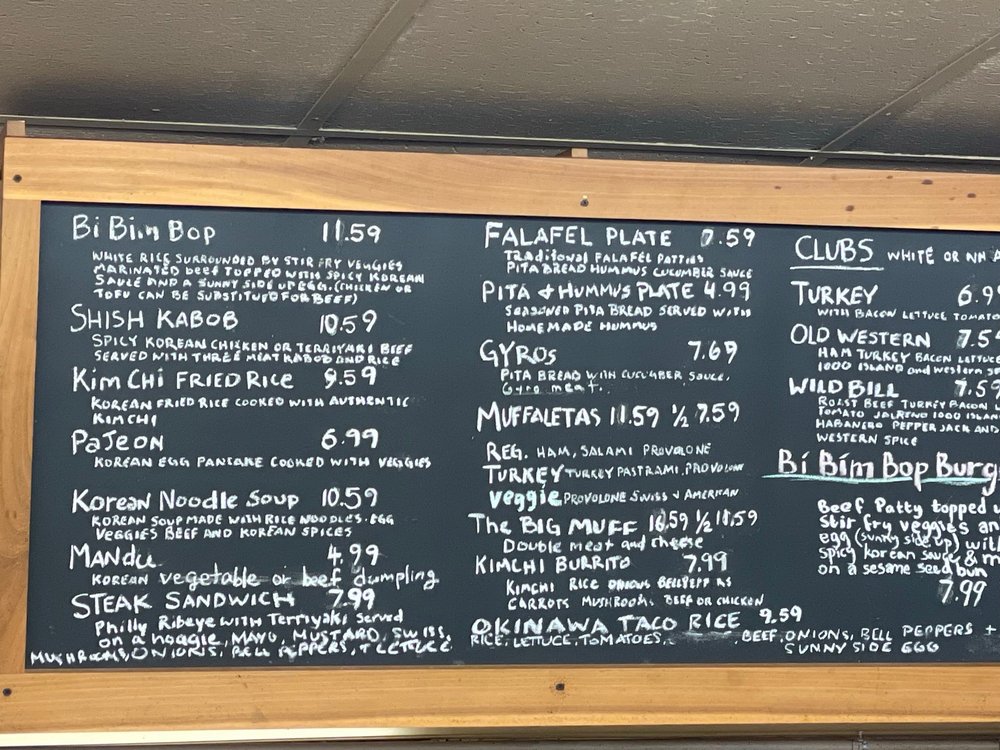 Bi Bim Bop 11.59
WHITE RICE SURROUNDED BY STIR FRY VEGGIES
MARINATED beef TOPPED WITH SPICY KOREAN
SAUCE AND A SUNNY SIDE UP EGG. (CHICKEN OR
TOFU CAN BE SUBSTITUTED FOR BEEF)
SHISH KABOB 10.59
SPICY KOREAN CHICKEN OR TERRIYAKI BEEF
SERVED WITH THREE MEAT KABOB AND RICE
Kim CHi FRIED RICE 9.59
KOREAN FRIED RICE COOKED WITH AUTHENTIC
KIMCHI
PaJeoN 6.99
KOREAN EGG PANCAKE COOKED WITH VEGGIES
Korean Noodle Soup 10.59
KOREAN SOUP MADE WITH RICE NOODLES. EGG
VEGGIES BEEF AND KOREAN SPICES
MANdu 4.99
KOREAN vegetable or beef dumpling
STEAK SANDWICH 7.99
Philly Ribeye WITH Terriyaki Served
on a hoagie, MAYO, MUSTARD, SWISS,
MUSHROOMS, ONIONS, BELL PEPPERS, + LETTUCE
FALAFEL PLATE 7.59
Traditonal FALAFEL PATTIES
PITA BREAD HUMMUS CUCUMBER SAUCE
PITA + HUMMUS PLATE 4.99
SEASONED PITA BREAD SERVED WITH
HOMEMADE HUMMUS
GYROS 7.69
PITA BREAD WITH CUCUMBER SAUCE,
Gyro meat.
MUFFALETAS 11.59 ½ 7.59
REG. HAM, SALAMI PROVOLONE
TURKEY TURKEY PASTRAMI, PROVOLONE
Veggie PROVOLONE SWISS + AMERICAN
The BIG MUFF 16.59 ½ 11.59
Double meat and cheese
KIMCHI BURRITO 7.99
KIMCHI RICE ONIONS BELLPEPPERS
CARROTS MUSHROOMS BEEF OR CHICKEN
OKINAWA TACO RICE 9.59
RICE, LETTUCE, TOMATOES, BEEF, ONIONS, BELL PEPPERS +
SUNNY SIDE EGG
CLUBS WHITE OR
TURKEY 6.9
WITH BACON LETTUCE TOMATO
OLD WESTERN 7.5
HAM TURKEY BACON LETTUCE
1000 ISLAND and western
WILD BILL 7.59
ROAST BEEF TURKEY BACON
TOMATO 1000 ISLAN
HABANERO PEPPER JACK AND
WESTERN SPICE
Bi Bim Bop Burg
Beef Patty topped
Stir fry veggies an
egg (sunny side up) wit
spicy korean sauce & m
on a sesame seed bun
7.99